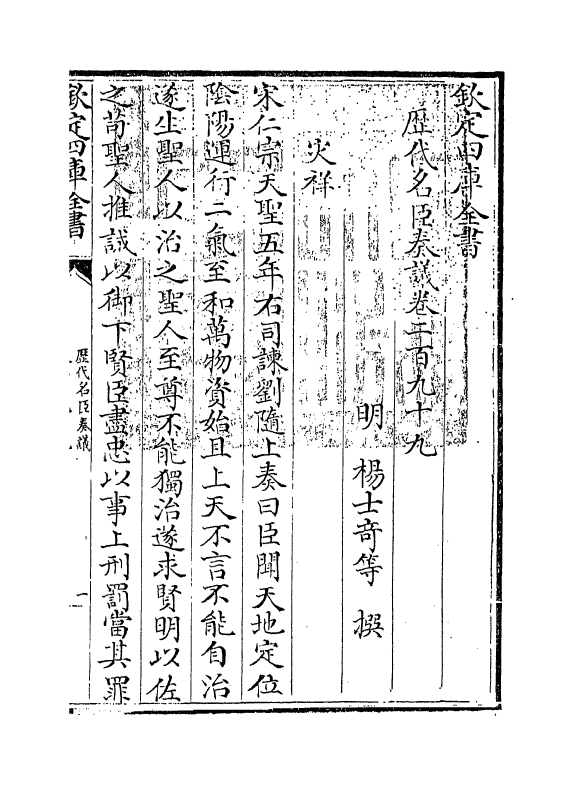 欽定四庫全書
歷代名臣奏議卷二百九十九
明 楊士奇等 撰
災祥
宋仁宗天聖五年右司諫劉隨上奏曰臣聞天地定位
陰陽運行二氣至和萬物資始且上天不言不能自治
遂生聖人以治之聖人至尊不能獨治遂求賢明以佐
之苟聖人推誠以御下賢臣盡忠以事上刑罰當其罪
欽定四庫全書
歷代名臣奏議
一